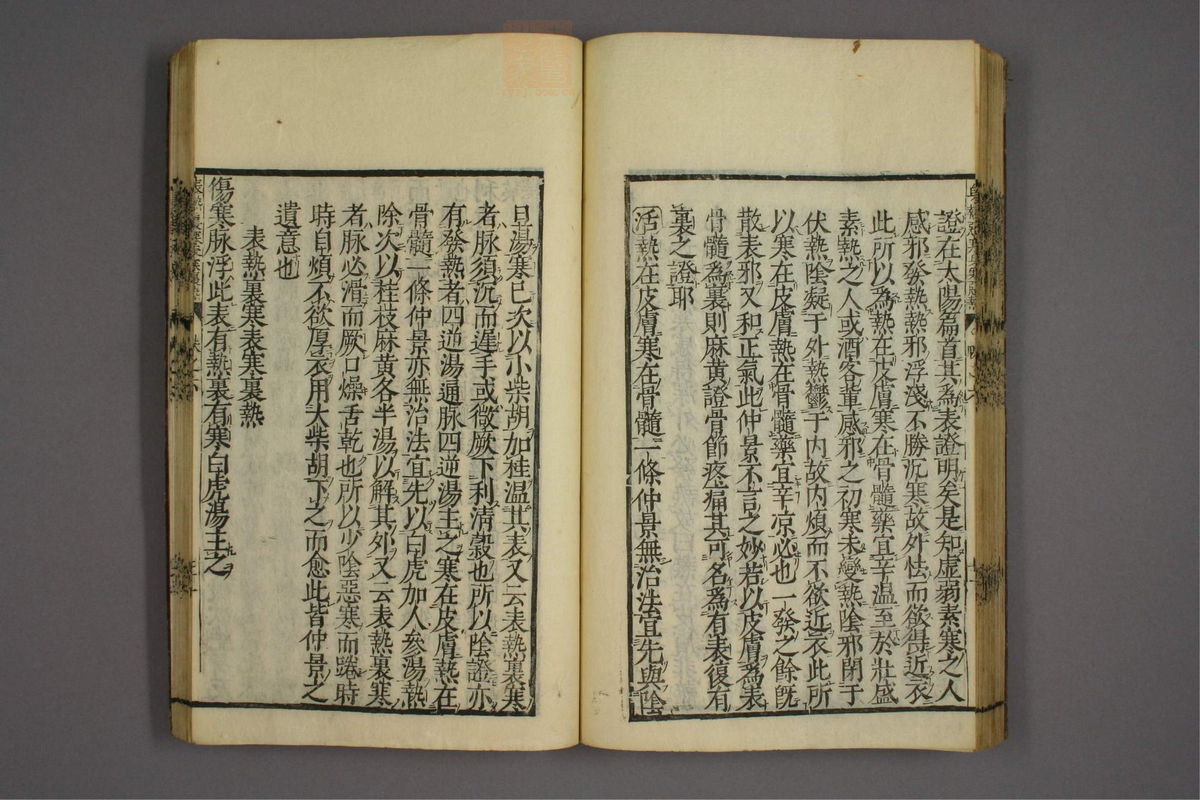 證在太陽篇首其為表證明矣是知虛弱素寒之人
感邪發熱熱邪浮淺不勝沉寒故外怯而欲得近衣
此所以為熱在皮膚寒在骨髓藥宜辛溫至於壯盛
素熱之人或酒客軰感邪之初寒未變熱陰邪閉于
伏熱陰凝于外熱鬱于内故内煩而不欲近衣此所
以寒在皮膚熱在骨髓藥宜辛凉必也一發之餘旣
散表邪又和正氣此仲景不言之妙若以皮膚為表
骨髓為裏則麻黃證骨節疼痛其可名為有表復有
裏之證耶
活熱在皮膚寒在骨髓一條仲景無治法宜先與陰
旦湯寒已次以小柴胡加桂溫其表又云表熱裏寒
者脉須沉而遲手或微厥下利清穀也所以陰證亦
有發熱者四逆湯通脉四逆湯主之寒在皮膚熱在
骨髓一條仲景亦無治法宜先以白虎加人參湯熱
除次以桂枝麻黃各半湯以解其外又云表熱裏寒
者脉必滑而厥口燥舌乾也所以少陰惡寒而踡時
時自煩不欲厚衣用大柴胡下之而愈此皆仲景之
遺意也
表熱裏寒表寒裏熱
傷寒脉浮此表有熱裏有寒白虎湯主之